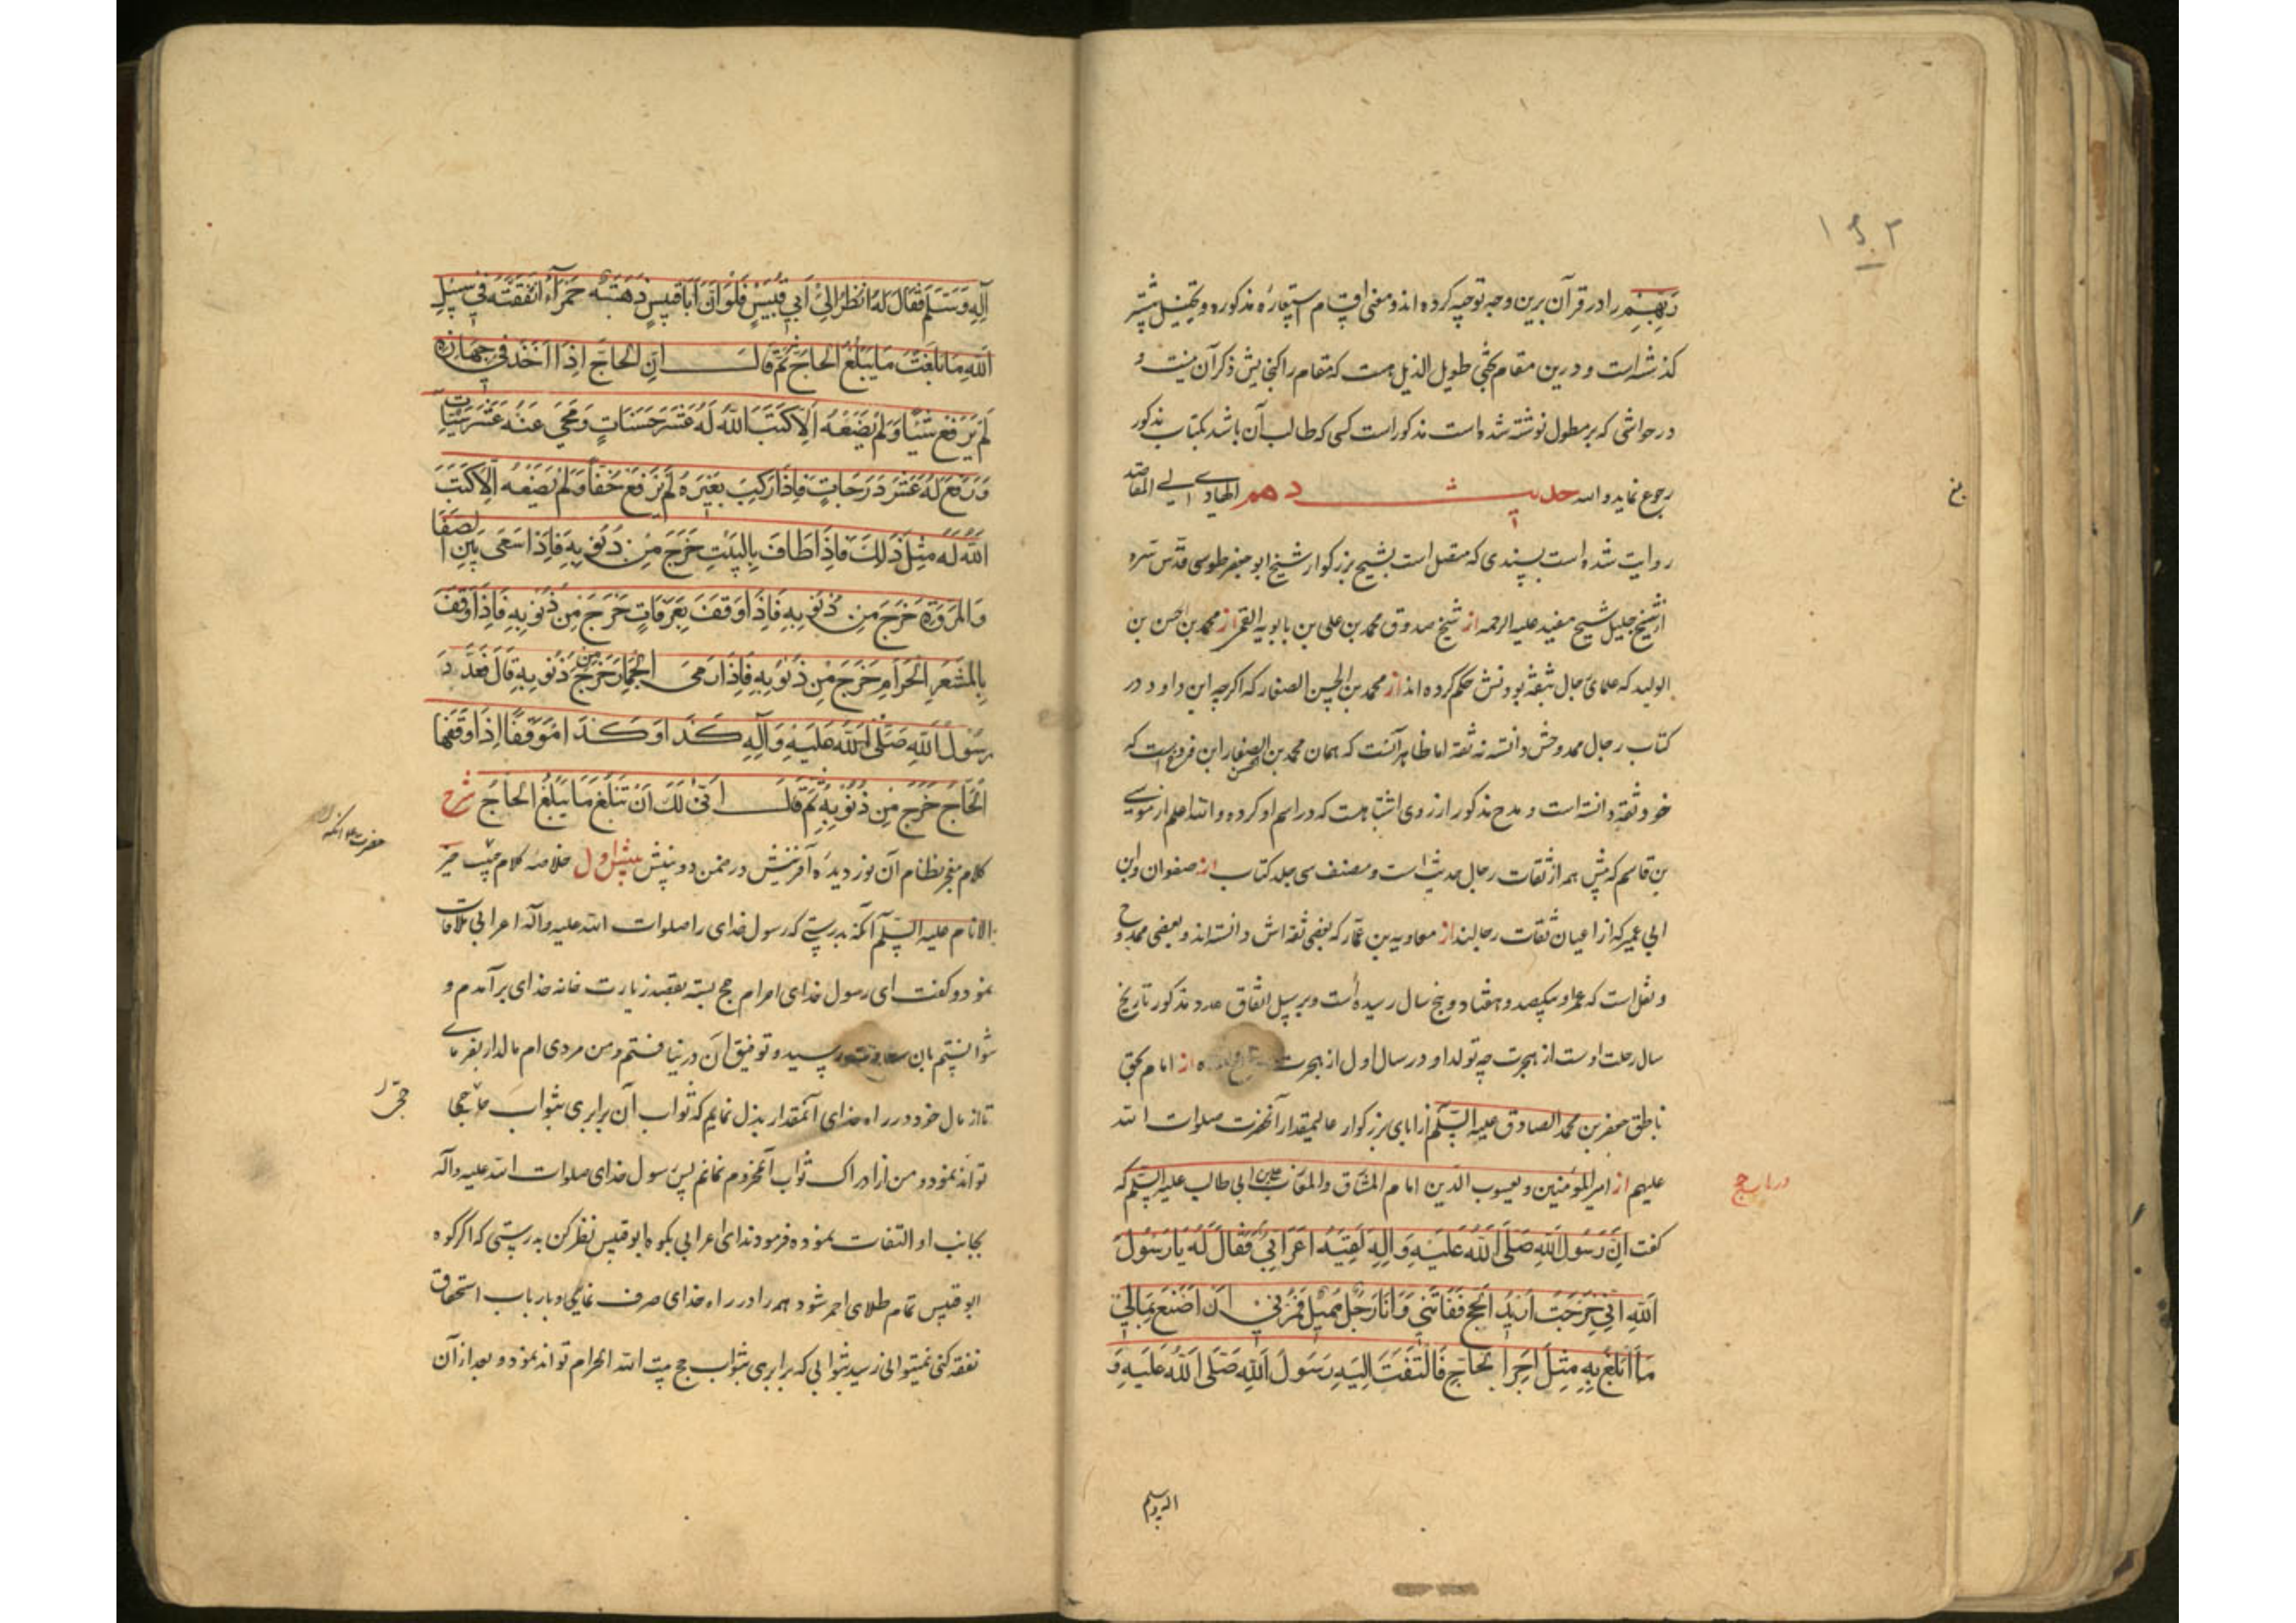 ۱۵۲
ربهم را در قرآن برین وجه توجیه کرده اند و معنی اقسام استعاره مذکوره و تخییل پیشتر
کذشته است و درین مقام بحثی طویل الذیل هست که مقام را کنجایش ذکر آن نیست و
در حواشی که بر مطول نوشته شده است مذکور است کسی که طالب آن باشد بکتاب مذکور
رجوع نماید والله الهادی الی المقاصد حدیث دهم
روایت شده است بسندی که متصل است بشیخ بزرکوار شیخ ابو جعفر طوسی قدس سره
از شیخ جلیل شیخ مفید علیه الرحمه از شیخ صدوق محمد بن علی بن بابویه القمی از محمد بن الحسن بن
الولید که علمای رجال بثقه بودنش حکم کرده اند از محمد بن الحسن الصفار که اکرچه ابن داود در
کتاب رجال ممدوحش دانسته نه ثقه اما ظاهر آنست که همان محمد بن الحسن الصفار ابن فروخ است که
خود ثقه دانسته است و مدح مذکور از روی اشتباهست که در اسم او کرده والله اعلم از موسی
بن قاسم که هم از ثقات رجال حدیث است و مصنف سی جلد کتاب از صفوان و ابن
ابی عمیر که از اعیان ثقات رجالند از معاویه بن عمار که بعضی ثقه اش دانسته اند و بعضی ممدوح
و نقل است که عمر او بیکصد و هفتاد و پنج سال رسیده است و بر سبیل اتفاق عدد مذکور تاریخ
سال رحلت اوست از هجرت چه تولد او در سال اول از هجرت از امام بحق
ناطق جعفر بن محمد الصادق علیه السلم از آبای بزرکوار عالیمقدار آنحضرت صلوات الله
علیهم از امیر المؤمنین و یعسوب الدین امام المشارق والمغارب علی بن ابی طالب علیه السلم که
در باب حج
کفت اِنَّ رَسُولَ اللهِ صَلَّی اللهُ عَلَیْهِ وَآلِهِ لَقِیَهُ اَعْرَابِیٌّ فَقَالَ لَهُ یَا رَسُولَ
اللهِ اِنّی خَرَجْتُ اُرِیدُ الْحَجَّ فَفَاتَنی وَاَنَا رَجُلٌ مُمیلٌ فَمُرْنی اَنْ اَصْنَعَ بِمَالی
مَا اَبْلُغُ بِهِ مِثْلَ اَجْرِ الْحَاجِّ فَالْتَفَتَ اِلَیْهِ رَسُولُ اللهِ صَلَّی اللهُ عَلَیْهِ وَ
آله وسلم
آلِهِ وَسَلَّمَ فَقَالَ لَهُ انْظُرْ اِلی اَبی قُبَیْسٍ فَلَوْ اَنَّ اَبَا قُبَیْسٍ ذَهَبَةٌ حَمْرَآءُ اَنْفَقْتَهُ فی سَبیلِ
اللهِ مَا بَلَغْتَ مَا یَبْلُغُ الْحَاجُّ ثُمَّ قَالَ اِنَّ الْحَاجَّ اِذَا اَخَذَ فی جَهَازِهِ
لَمْ یَرْفَعْ شَیْئًا وَلَمْ یَضَعْهُ اِلَّا کَتَبَ اللهُ لَهُ عَشْرَ حَسَنَاتٍ وَمَحی عَنْهُ عَشْرَ سَیِّئَاتٍ
وَرَفَعَ لَهُ عَشْرَ دَرَجَاتٍ فَاِذَا رَکِبَ بَعیرَهُ لَمْ یَرْفَعْ خُفًّا وَلَمْ یَضَعْهُ اِلَّا کَتَبَ
اللهُ لَهُ مِثْلَ ذلِکَ فَاِذَا طَافَ بِالْبَیْتِ خَرَجَ مِنْ ذُنُوبِهِ فَاِذَا سَعی بَیْنَ الصَّفَا
وَالْمَرْوَةِ خَرَجَ مِنْ ذُنُوبِهِ فَاِذَا وَقَفَ بِعَرَفَاتٍ خَرَجَ مِنْ ذُنُوبِهِ فَاِذَا وَقَفَ
بِالْمَشْعَرِ الْحَرَامِ خَرَجَ مِنْ ذُنُوبِهِ فَاِذَا رَمَی الْجِمَارَ خَرَجَ مِنْ ذُنُوبِهِ قَالَ فَعَدَّ دَ
رَسُولُ اللهِ صَلَّی اللهُ عَلَیْهِ وَآلِهِ کَذَا وَکَذَا مَوْقِفًا اِذَا وَقَفَهَا
الْحَاجُّ خَرَجَ مِنْ ذُنُوبِهِ ثُمَّ قَالَ اَنّی لَکَ اَنْ تَبْلُغَ مَا یَبْلُغُ الْحَاجُّ شرح
کلام معجز نظام آن نور دیدهٔ آفرینش در ضمن دو بینش بینش اول خلاصهٔ کلام خیر
الانام علیه السلم آنکه بدرستی که رسول خدای را صلوات الله علیه وآله اعرابی ملاقات
نمود و کفت ای رسول خدای احرام حج بسته بقصد زیارت خانه خدای برآمدم و
نتوانستم بآن سعادت رسید و توفیق آن در نیافتم و من مردی ام مالدار بفرمای
تا از مال خود در راه خدای آنمقدار بذل نمایم که ثواب آن برابری بثواب حاجی
تواند نمود و من از ادراک ثواب آن محروم نمانم پس رسول خدای صلوات الله علیه وآله
بجانب او التفات نموده فرمودند ای اعرابی بکوه ابو قبیس نظر کن بدرستی که اکر کوه
ابو قبیس تمام طلای احمر شود همه را در راه خدای صرف نمایی و بارباب استحقاق
نفقه کنی نمیتوانی رسید بثوابی که برابری بثواب حج بیت الله الحرام تواند نمود و بعد از آن